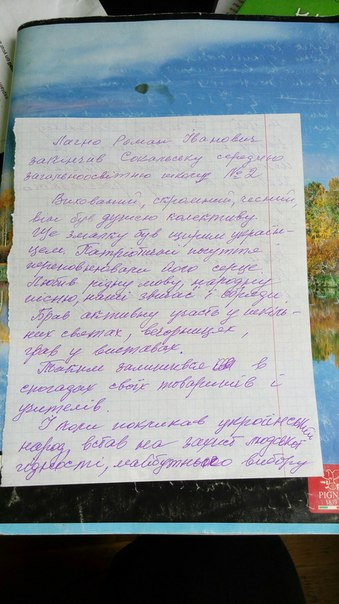 Лагно Роман Іванович
закінчив Сокальську середню
загальноосвітню школу №2
Вихований, скромний, чесний,
він був душею колективу.
Ще змалку був щирим україн-
цем. Патріотичні почуття
переповнювали його серце
Любив рідну мову, народну
пісню, наші звичаї і обряди.
Брав активну участь у шкіль-
них святах, вечорницях,
грав у виставах.
Таким залишився в
спогадах своїх товаришів і
учителів.
І коли покликав український
народ встав на захист людської
гідності, майбутнього вибору
PIGN